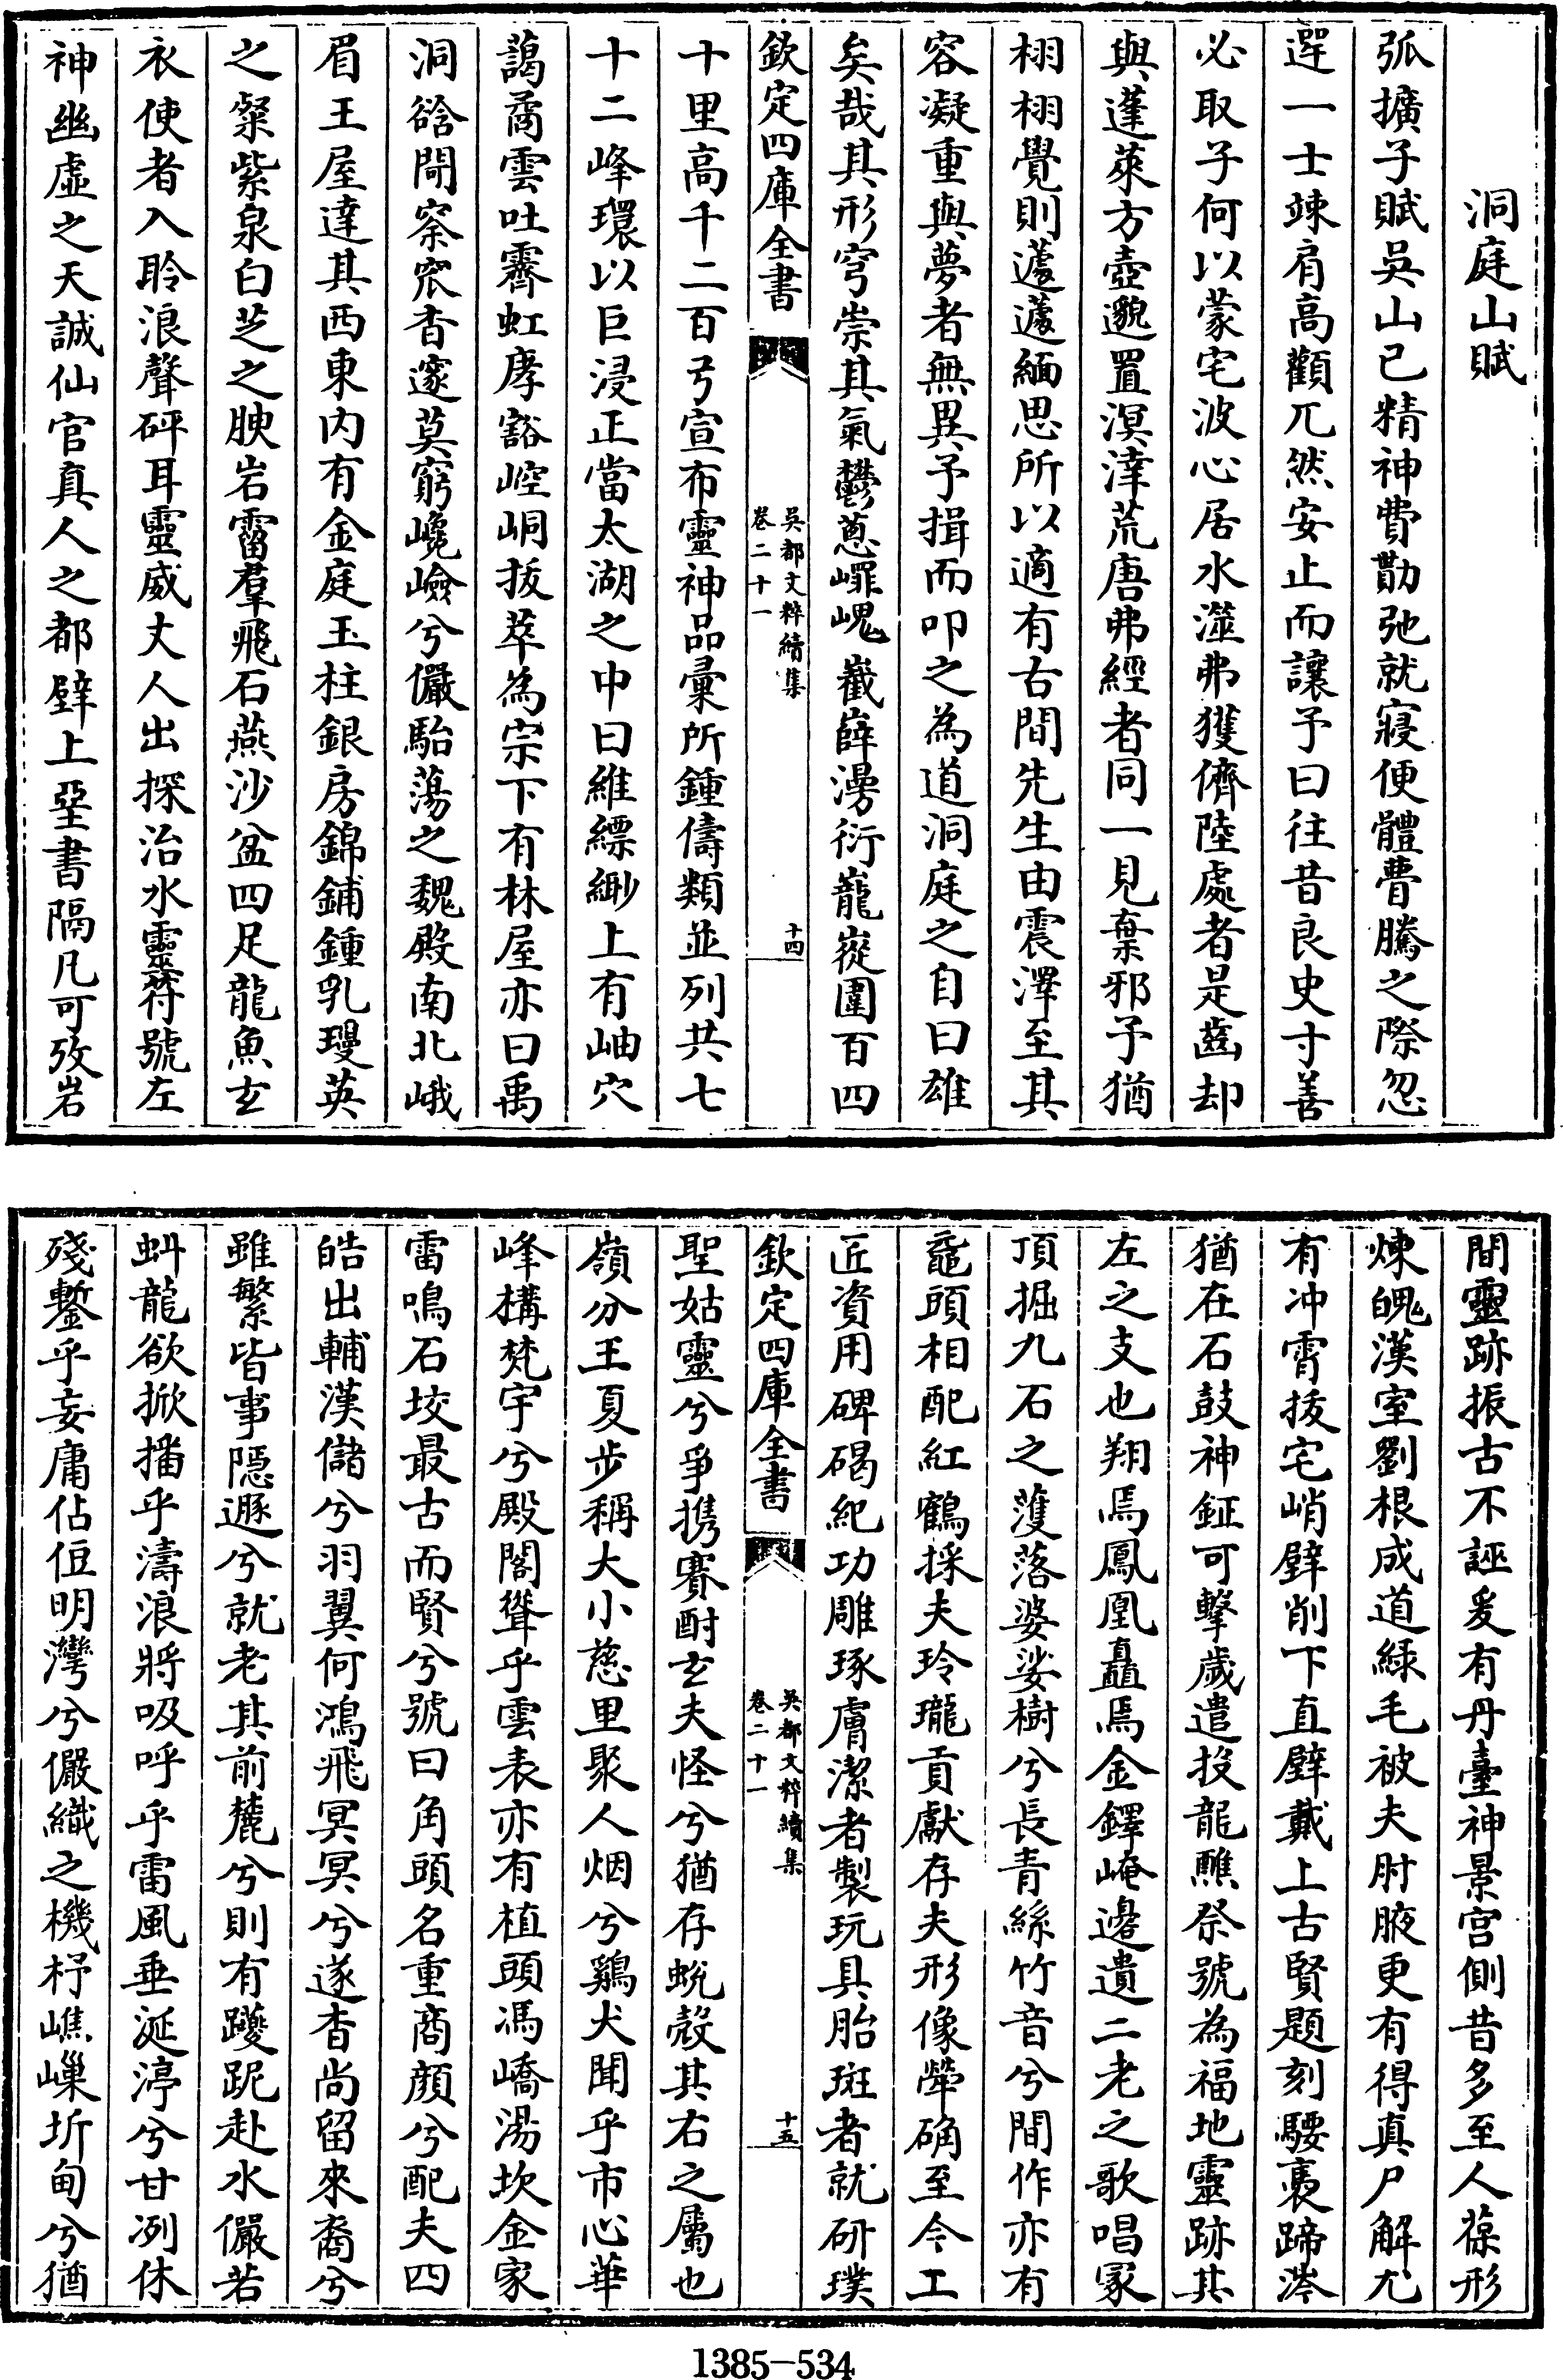 洞庭山賦
弧擴子賦吳山已精神費勩弛就寢便體瞢騰之際忽
遻一士竦肩高顴兀然安止而讓予曰往昔良史寸善
必取子何以蒙宅波心居水澨弗獲儕陸處者是齒却
與蓬萊方壺邈置溟涬荒唐弗經者同一見棄邪予猶
栩栩覺則蘧蘧緬思所以適有古間先生由震澤至其
容凝重與夢者無異予揖而叩之為道洞庭之自曰雄
矣哉其形穹崇其氣鬱蔥嶵嵬嶻嶭漫衍巃嵸圍百四
欽定四庫全書
吳都文粹續集
卷二十一
十四
十里高千二百弓宣布靈神品彙所鍾儔類並列共七
十二峰環以巨浸正當太湖之中曰維縹緲上有岫穴
藹矞雲吐霽虹庨豁崆峒拔萃為宗下有林屋亦曰禹
洞谽閜寀窅杳邃莫窮巉嶮兮儼駘蕩之魏殿南北峨
眉王屋達其西東內有金庭玉柱銀房錦鋪鍾乳璦英
之粲紫泉白芝之腴岩霤羣飛石燕沙盆四足龍魚玄
衣使者入聆浪聲砰耳靈威丈人出探治水靈符號左
神幽虛之天誠仙官真人之都壁上堊書隔凡可攷岩
間靈跡振古不誣爰有丹臺神景宮側昔多至人葆形
煉魄漢室劉根成道綠毛被夫肘腋更有得真尸解尤
有冲霄拔宅峭壁削下直壁戴上古賢題刻騕褭蹄涔
猶在石鼓神鉦可擊歲遣投龍醮祭號為福地靈跡其
左之支也翔焉鳳凰矗焉金鐸崦邊遺二老之歌唱冢
頂掘九石之濩落婆娑樹兮長青絲竹音兮間作亦有
黿頭相配紅鶴採夫玲瓏貢獻存夫形像犖确至今工
匠資用碑碣紀功雕琢膚潔者製玩具胎斑者就研璞
欽定四庫全書
吳都文粹續集
卷二十一
十五
聖姑靈兮爭携賽酎玄夫怪兮猶存蛻殼其右之屬也
嶺分王夏步稱大小慈里聚人烟兮鷄犬聞乎市心華
峰構梵宇兮殿閣聳乎雲表亦有植頭馮嶠湯坎金家
雷鳴石坟最古而賢兮號曰角頭名重商顏兮配夫四
皓出輔漢儲兮羽翼何鴻飛冥冥兮遂杳尚留來裔兮
雖繁皆事隱遯兮就老其前麓兮則有躨跜赴水儼若
虯龍欲掀播乎濤浪將吸呼乎雷風垂涎渟兮甘冽休
殘鏨乎妄庸佔偪明灣兮儼織之機杼嶕嶫圻甸兮猶
1385-534